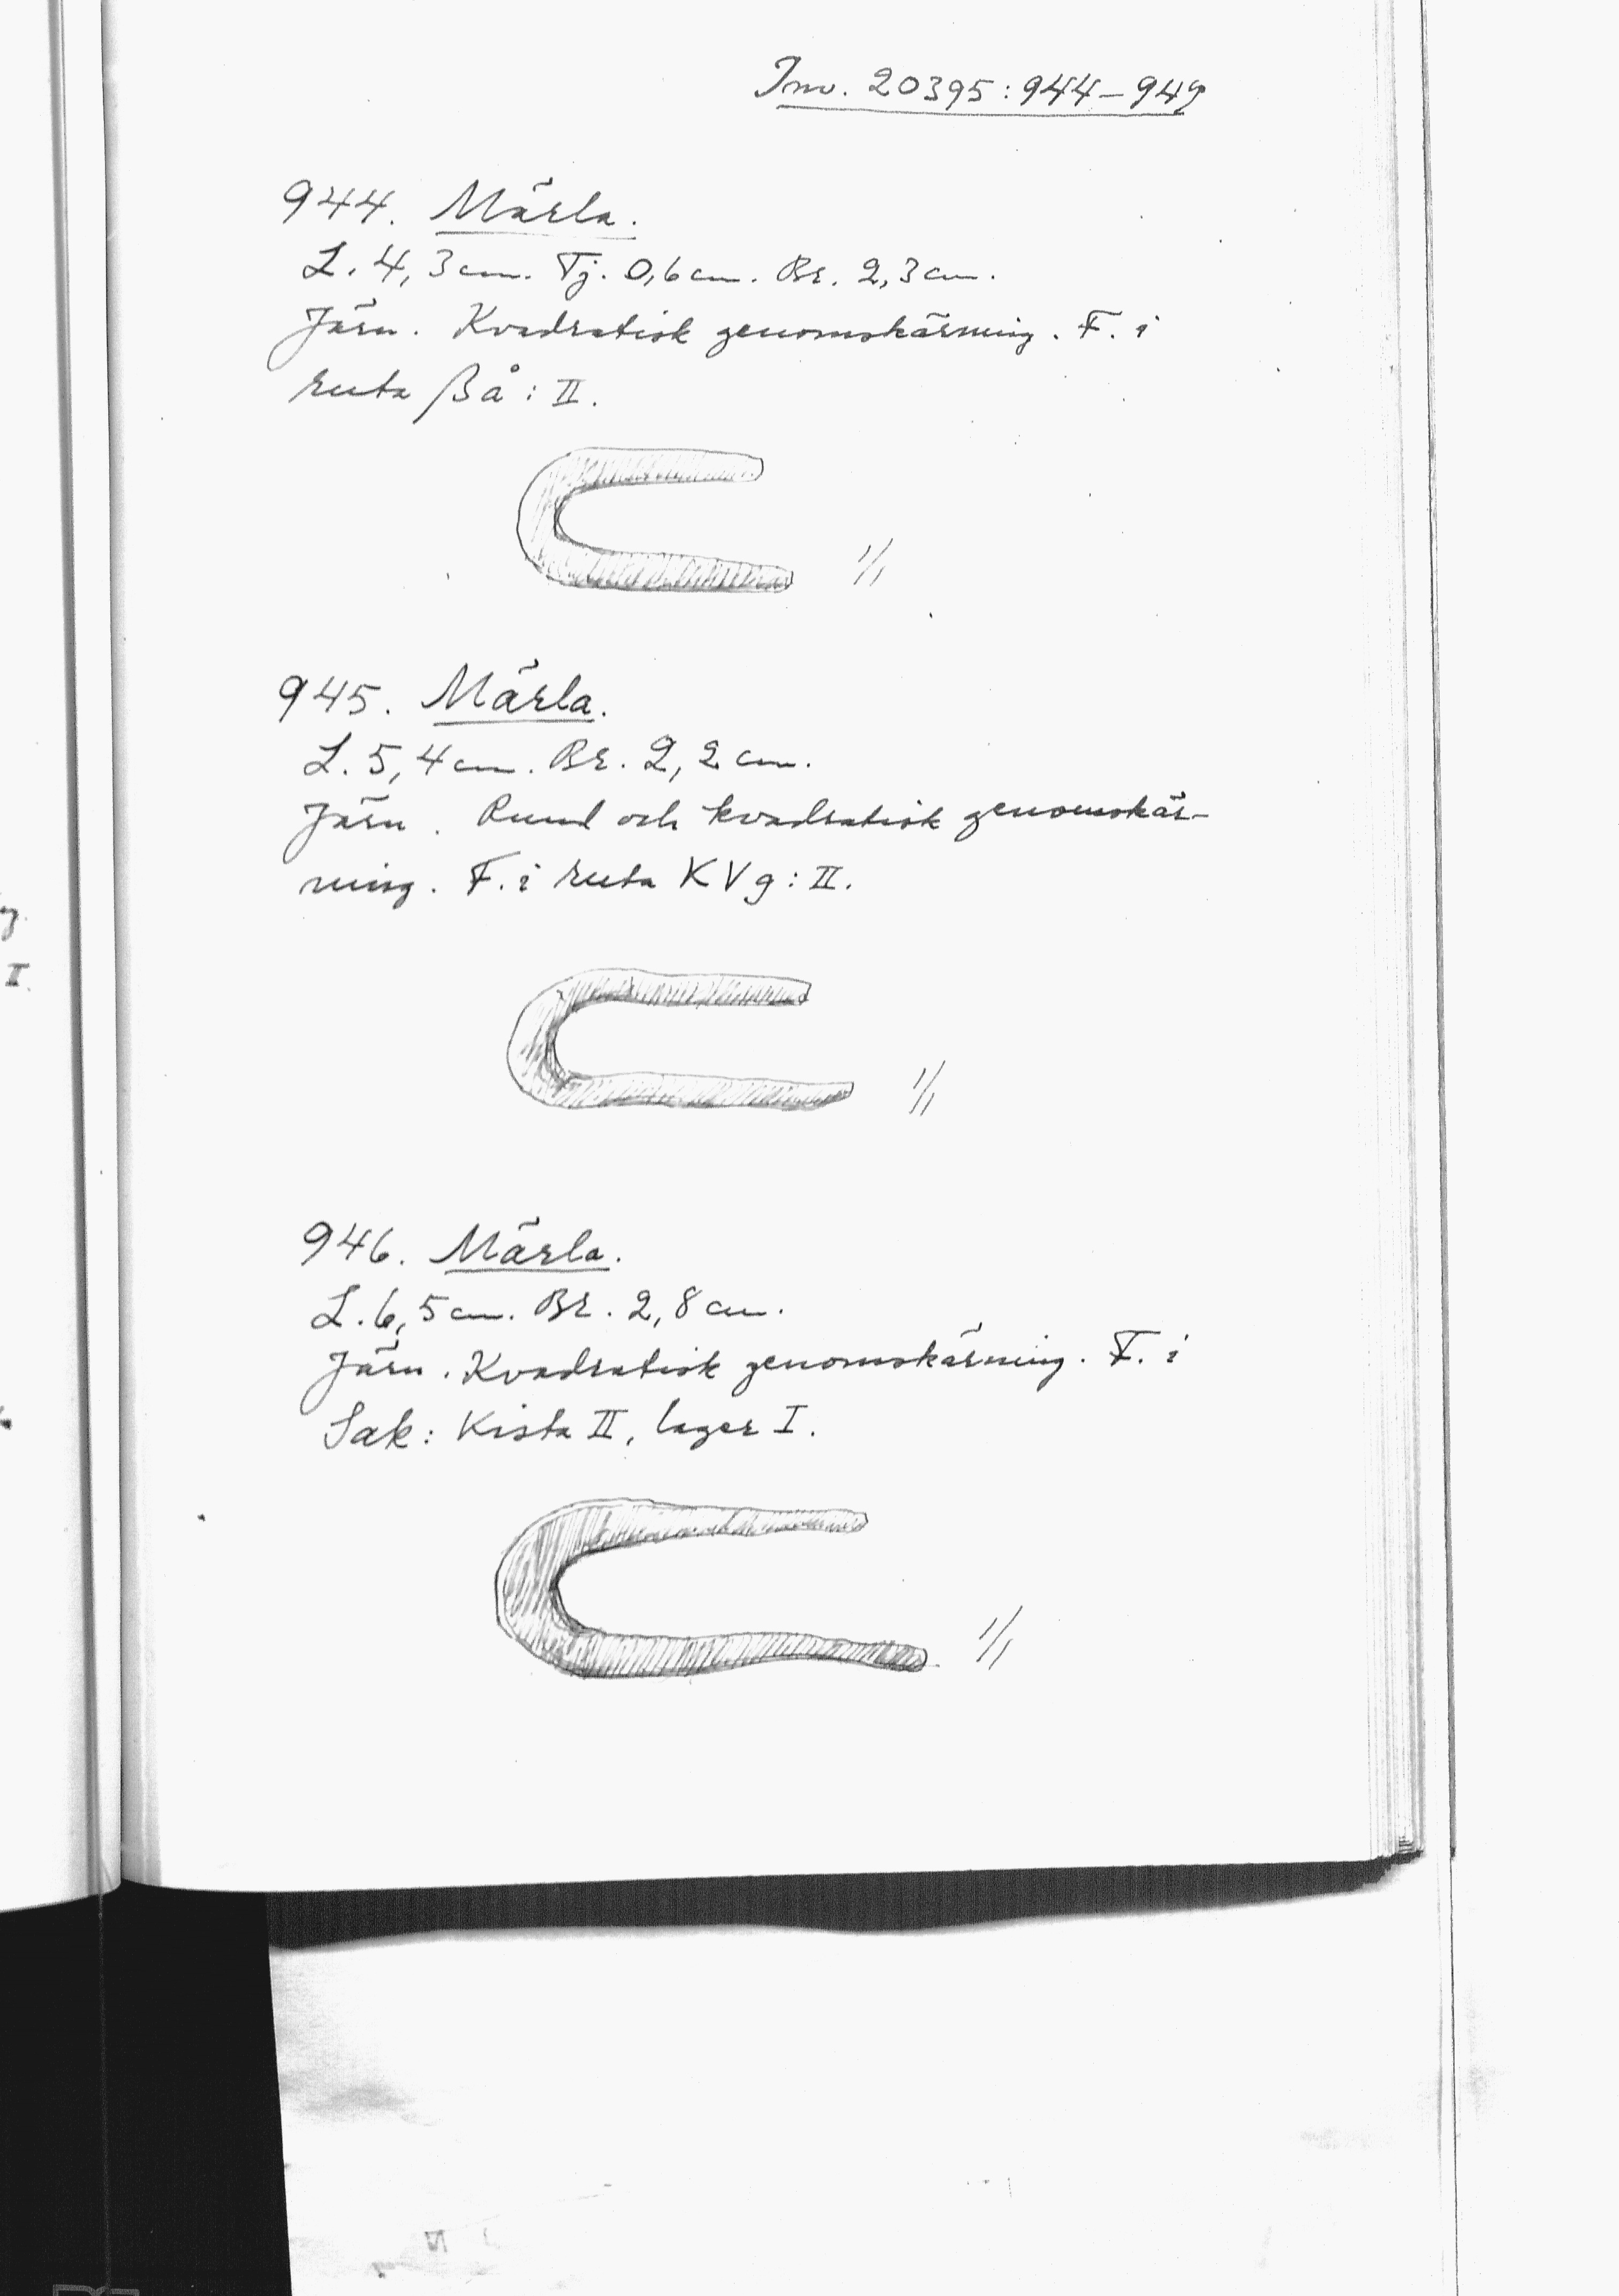 Inv. 20395:944-949
944. Märla.
L. 4,3 cm. Tj. 0,6 cm. Br. 2,3 cm.
Järn. Kvadratisk genomskärning. F. i
ruta βå: II.
1/1
945. Märla.
L. 5,4 cm. Br. 2,2 cm.
Järn. Rund och kvadratisk genomskär-
ning. F. i ruta KVg: II.
1/1
946. Märla.
L. 6,5 cm. Br. 2,8 cm.
Järn. Kvadratisk genomskärning. F. i
Sak: Kista II, lager I.
1/1